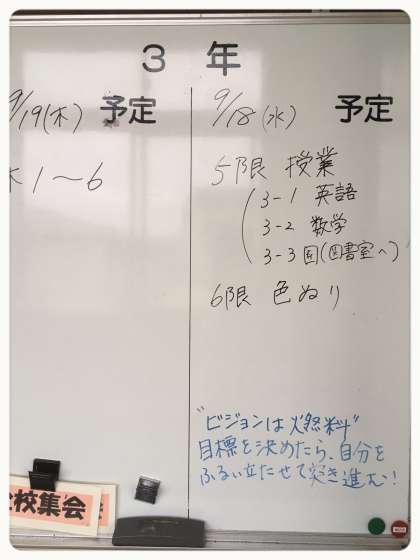 3 年
9/18(水) 予定
5限 授業
3-1 英語
3-2 数学
3-3 国(図書室へ)
6限 色ぬり
"ビジョンは燃料"
目標を決めたら、自分を
ふるい立たせて突き進む!
9/19(木) 予定
木1〜6
校集会